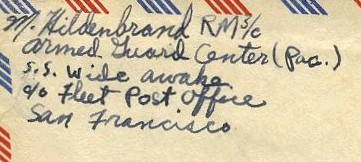 M. Hildenbrand RM3/c
Armed Guard Center (Pac.)
S.S. Wide awake
c/o Fleet Post Office
San Francisco